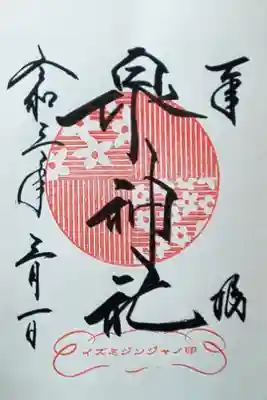 奉拝
泉神社
令和三年三月一日
イズミジンジャノ印